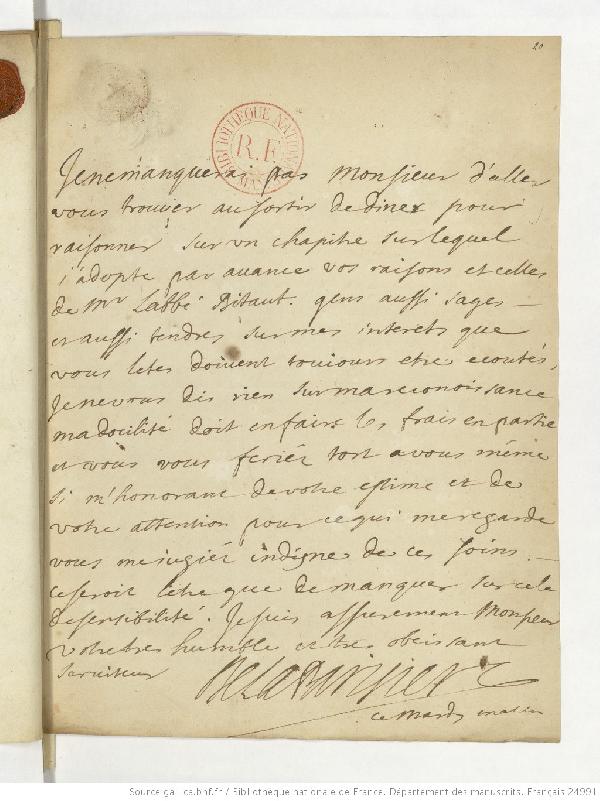 20
BIBLIOTHEQUE NATIONALE
R.F.
MSS
Je ne manquerai pas Monsieur d'aller
vous trouver au sortir de diner pour
raisonner sur un chapitre sur lequel
j'adopte par auance vos raisons et celles
de Mr Labbé Bitaut. gens aussi sages
et aussi tendres sur mes interets que
vous letes doivent toujours etre ecoutés,
Je ne vous dis rien sur ma reconoissance
ma docilité doit en faire les frais en partie
et vous vous feriéz tort a vous même
si m'honorant de votre estime et de
votre attention pour ce qui me regarde
vous me jugiéz indigne de ces soins
ce seroit letre que de manquer sur cela
de sensibilité. Je suis assurement Monsieur
votre tres humble et tres obeissant
serviteur
ce mardy matin
Source gallica.bnf.fr / Bibliothèque nationale de France. Département des manuscrits. Français 24991